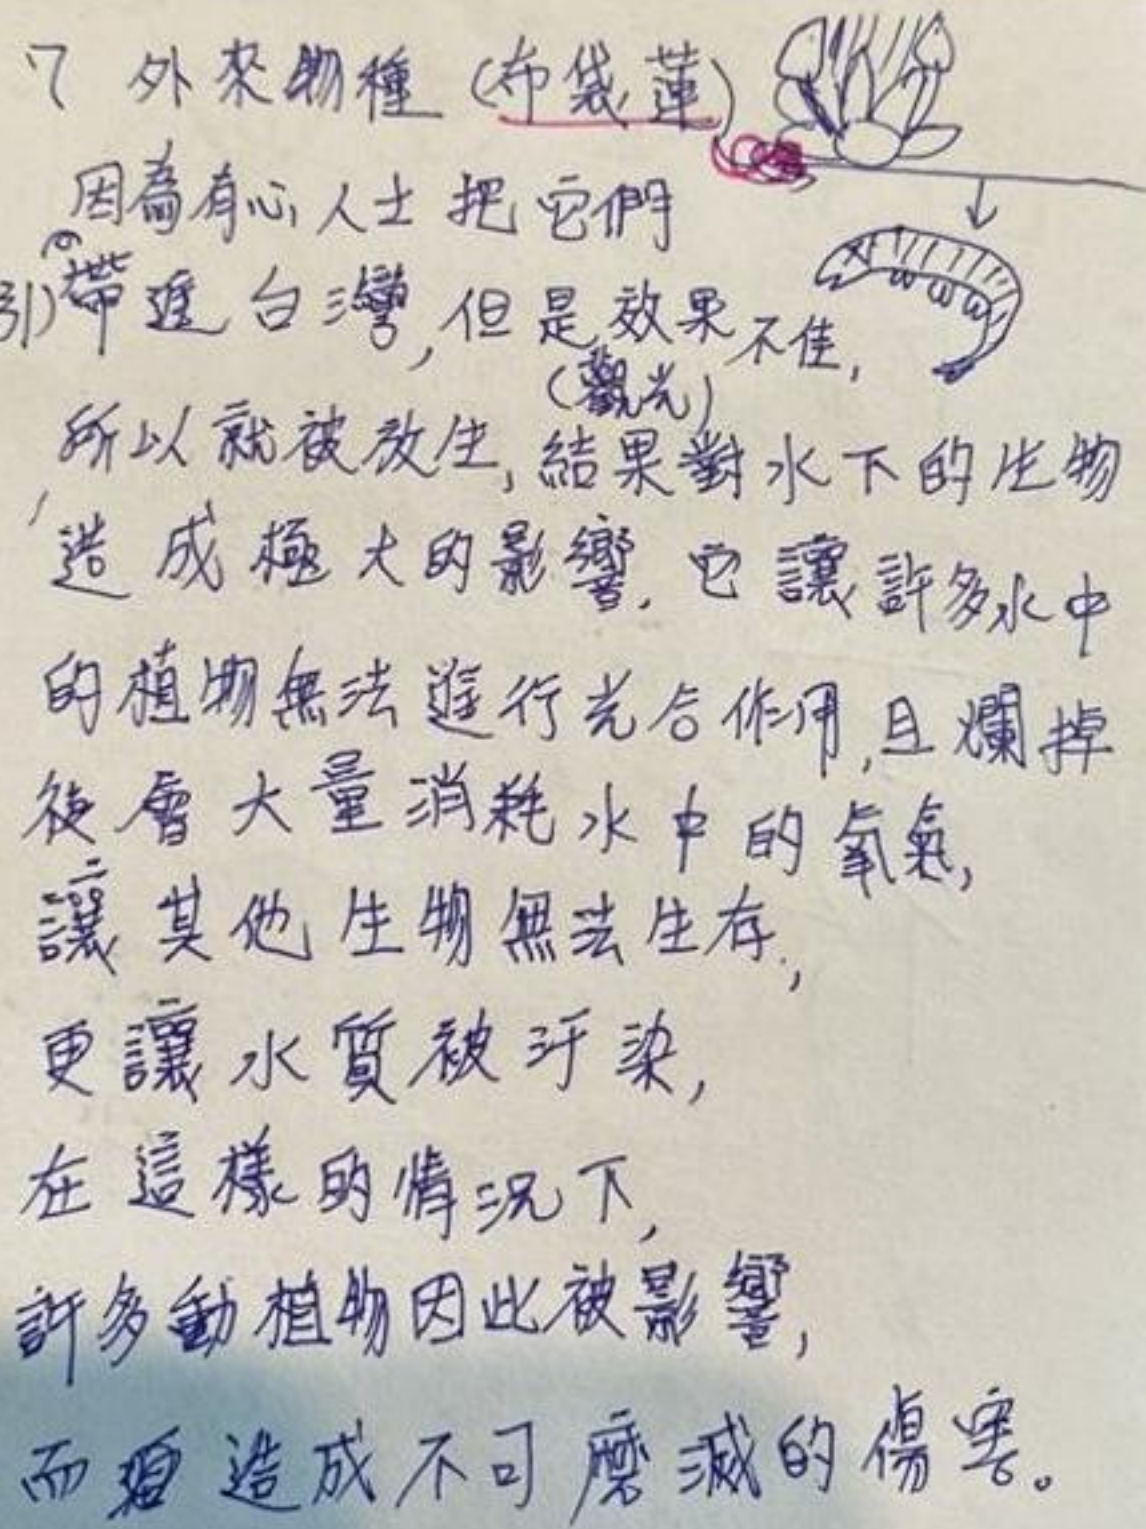 7 外來物種 (布袋蓮)
因為有心人士把它們
引)帶進台灣,但是效果不佳,
(觀光)
所以就被放生,結果對水下的生物
造成極大的影響.它讓許多水中
的植物無法進行光合作用,且爛掉
後會大量消耗水中的氧氣,
讓其他生物無法生存,
更讓水質被汙染,
在這樣的情況下,
許多動植物因此被影響,
而造成不可磨滅的傷害。